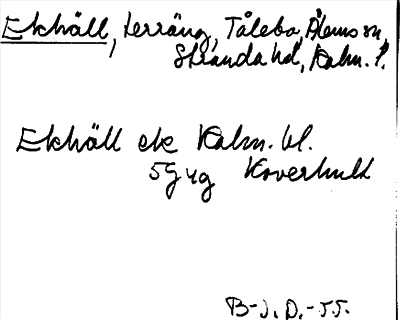 Ekhäll, terräng, Tålebo, Ålems sn,
Stranda hd, Kalm. l.
Ekhäll ek Kalm. bl.
5G4g Koverhult
B-J. D. -55.